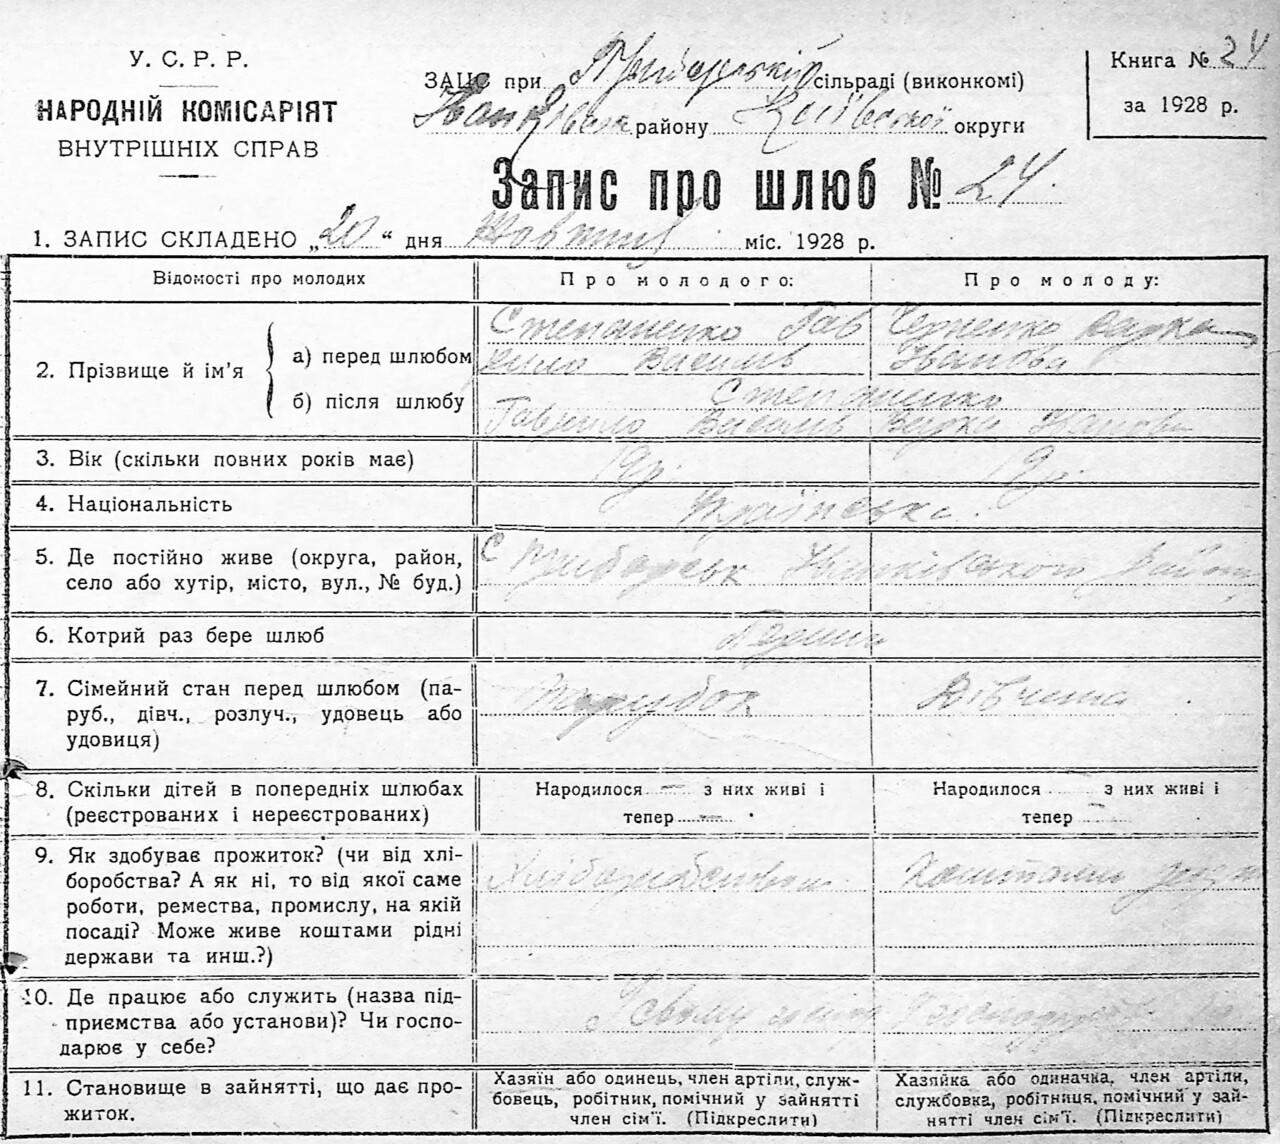 У. С. Р. Р.
НАРОДНІЙ КОМІСАРІЯТ
ВНУТРІШНІХ СПРАВ
ЗАЦС при сільраді (виконкомі)
району Київської округи
Книга № 24
за 1928 р.
Запис про шлюб № 24
1. ЗАПИС СКЛАДЕНО „20“ дня Жовтня міс. 1928 р.
Відомості про молодих
Про молодого:
Про молоду:
2. Прізвище й ім’я
а) перед шлюбом
Степаненко Гав
рило Василів
Черненко
Іванова
б) після шлюбу
Степаненко
Гаврило Василів
3. Вік (скільки повних років має)
19р.
19р.
4. Національність
Українська.
5. Де постійно живе (округа, район,
село або хутір, місто, вул., № буд.)
С Району
6. Котрий раз бере шлюб
7. Сімейний стан перед шлюбом (па-
руб., дівч., розлуч., удовець або
удовиця)
Парубок
Дівчина
8. Скільки дітей в попередніх шлюбах
(реєстрованих і нереєстрованих)
Народилося — з них живі і
тепер —
Народилося з них живі і
тепер
9. Як здобуває прожиток? (чи від хлі-
боробства? А як ні, то від якої саме
роботи, ремества, промислу, на якій
посаді? Може живе коштами рідні
держави та инш.?)
Хліборобством
Коштами
10. Де працює або служить (назва під-
приємства або установи)? Чи госпо-
дарює у себе?
11. Становище в зайнятті, що дає про-
житок.
Хазяїн або одинець, член артіли, служ-
бовець, робітник, помічний у зайнятті
член сім’ї. (Підкреслити)
Хазяйка або одиначка, член артіли,
службовка, робітниця, помічний у зай-
нятті член сім’ї. (Підкреслити)